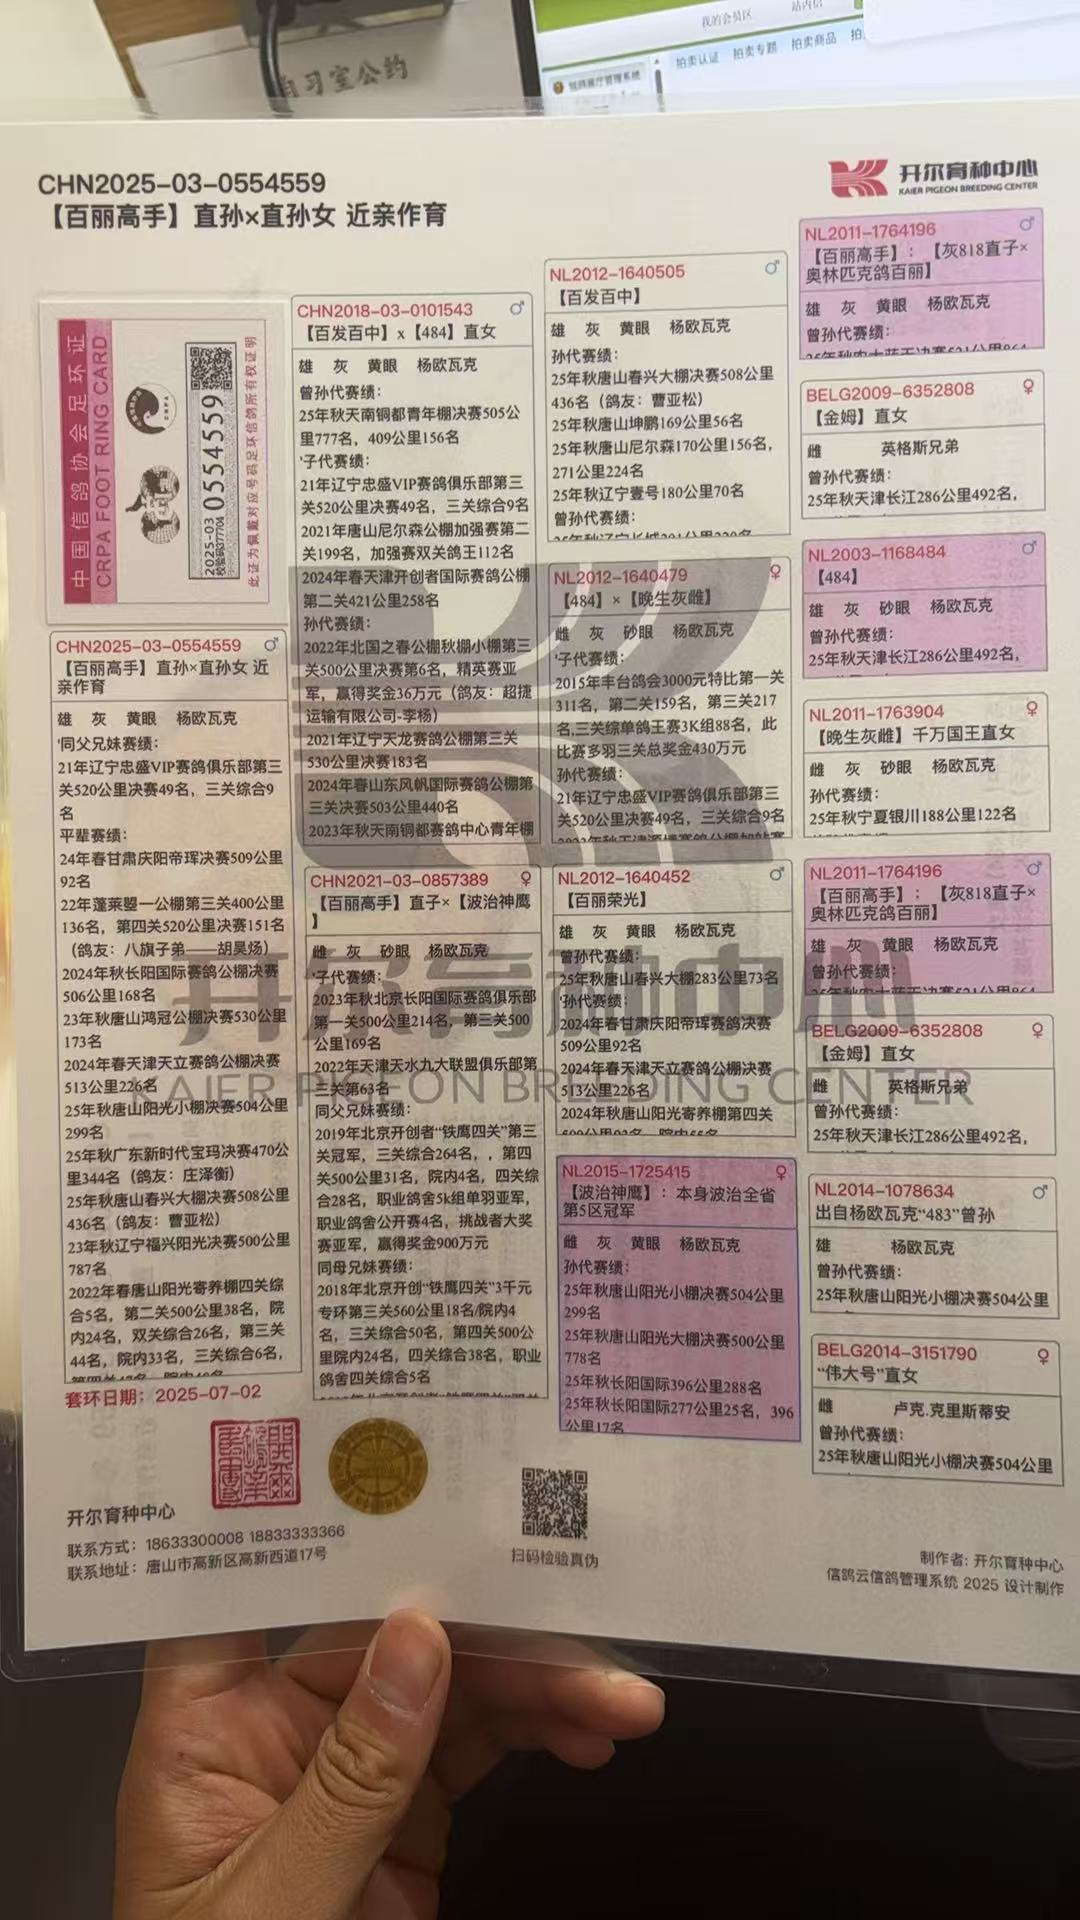 我的会员区
站内信
拍卖认证 拍卖专题 拍卖商品 拍
自习室公约
CHN2025-03-0554559
【百丽高手】直孙×直孙女 近亲作育
开尔育种中心
KAIER PIGEON BREEDING CENTER
中国信鸽协会足环证
CRPA FOOT RING CARD
2025-03 0554559
此证为佩戴对应号码足环信鸽所有权证明
CHN2025-03-0554559 ♂
【百丽高手】直孙×直孙女 近
亲作育
雄 灰 黄眼 杨欧瓦克
'同父兄妹赛绩:
21年辽宁忠盛VIP赛鸽俱乐部第三
关520公里决赛49名，三关综合9
名
平辈赛绩:
24年春甘肃庆阳帝珲决赛509公里
92名
22年蓬莱曌一公棚第三关400公里
136名，第四关520公里决赛151名
（鸽友：八旗子弟——胡昊炀）
2024年秋长阳国际赛鸽公棚决赛
506公里168名
23年秋唐山鸿冠公棚决赛530公里
173名
2024年春天津天立赛鸽公棚决赛
513公里226名
25年秋唐山阳光小棚决赛504公里
299名
25年秋广东新时代宝玛决赛470公
里344名（鸽友：庄泽衡）
25年秋唐山春兴大棚决赛508公里
436名（鸽友：曹亚松）
23年秋辽宁福兴阳光决赛500公里
787名
2022年春唐山阳光寄养棚四关综
合5名，第二关500公里38名，院
内24名，双关综合26名，第三关
44名，院内33名，三关综合6名，
套环日期：2025-07-02
CHN2018-03-0101543 ♂
【百发百中】x【484】直女
雄 灰 黄眼 杨欧瓦克
曾孙代赛绩:
25年秋天南铜都青年棚决赛505公
里777名，409公里156名
'子代赛绩:
21年辽宁忠盛VIP赛鸽俱乐部第三
关520公里决赛49名，三关综合9名
2021年唐山尼尔森公棚加强赛第二
关199名，加强赛双关鸽王112名
2024年春天津开创者国际赛鸽公棚
第二关421公里258名
孙代赛绩:
2022年北国之春公棚秋棚小棚第三
关500公里决赛第6名，精英赛亚
军，赢得奖金36万元（鸽友：超捷
运输有限公司-李杨）
2021年辽宁天龙赛鸽公棚第三关
530公里决赛183名
2024年春山东风帆国际赛鸽公棚第
三关决赛503公里440名
2023年秋天南铜都赛鸽中心青年棚
CHN2021-03-0857389 ♀
【百丽高手】直子×【波治神鹰
】
雌 灰 砂眼 杨欧瓦克
'子代赛绩:
2023年秋北京长阳国际赛鸽俱乐部
第一关500公里214名，第三关500
公里169名
2022年天津天水九大联盟俱乐部第
三关第63名
同父兄妹赛绩:
2019年北京开创者“铁鹰四关”第三
关冠军，三关综合264名，，第四
关500公里31名，院内4名，四关综
合28名，职业鸽舍5k组单羽亚军，
职业鸽舍公开赛4名，挑战者大奖
赛亚军，赢得奖金900万元
同母兄妹赛绩:
2018年北京开创“铁鹰四关”3千元
专环第三关560公里18名/院内4
名，三关综合50名，第四关500公
里院内24名，四关综合38名，职业
鸽舍综合5名
NL2012-1640505 ♂
【百发百中】
雄 灰 黄眼 杨欧瓦克
孙代赛绩:
25年秋唐山春兴大棚决赛508公里
436名（鸽友：曹亚松）
25年秋唐山坤鹏169公里56名
25年秋唐山尼尔森170公里156名，
271公里224名
25年秋辽宁壹号180公里70名
曾孙代赛绩:
NL2012-1640479 ♀
【484】×【晚生灰雌】
雌 灰 砂眼 杨欧瓦克
'子代赛绩:
2015年丰台鸽会3000元特比第一关
311名，第二关159名，第三关217
名,三关综单鸽王赛3K组88名，此
比赛多羽三关总奖金430万元
孙代赛绩:
21年辽宁忠盛VIP赛鸽俱乐部第三
关520公里决赛49名，三关综合9名
NL2012-1640452 ♂
【百丽荣光】
雄 灰 黄眼 杨欧瓦克
曾孙代赛绩:
25年秋唐山春兴大棚283公里73名
'孙代赛绩:
2024年春甘肃庆阳帝珲赛鸽决赛
509公里92名
2024年春天津天立赛鸽公棚决赛
513公里226名
2024年秋唐山阳光寄养棚第四关
NL2015-1725415 ♀
【波治神鹰】：本身波治全省
第5区冠军
雌 灰 黄眼 杨欧瓦克
孙代赛绩:
25年秋唐山阳光小棚决赛504公里
299名
25年秋唐山阳光大棚决赛500公里
778名
25年秋长阳国际396公里288名
25年秋长阳国际277公里25名，396
公里17名
NL2011-1764196 ♂
【百丽高手】：【灰818直子×
奥林匹克鸽百丽】
雄 灰 黄眼 杨欧瓦克
曾孙代赛绩:
BELG2009-6352808 ♀
【金姆】直女
雌 英格斯兄弟
曾孙代赛绩:
25年秋天津长江286公里492名，
NL2003-1168484 ♂
【484】
雄 灰 砂眼 杨欧瓦克
曾孙代赛绩:
25年秋天津长江286公里492名，
NL2011-1763904 ♀
【晚生灰雌】千万国王直女
雌 灰 砂眼 杨欧瓦克
孙代赛绩:
25年秋宁夏银川188公里122名
NL2011-1764196 ♂
【百丽高手】：【灰818直子×
奥林匹克鸽百丽】
雄 灰 黄眼 杨欧瓦克
曾孙代赛绩:
BELG2009-6352808 ♀
【金姆】直女
雌 英格斯兄弟
曾孙代赛绩:
25年秋天津长江286公里492名，
NL2014-1078634 ♂
出自杨欧瓦克“483”曾孙
雄 杨欧瓦克
曾孙代赛绩:
25年秋唐山阳光小棚决赛504公里
BELG2014-3151790 ♀
“伟大号”直女
雌 卢克.克里斯蒂安
曾孙代赛绩:
25年秋唐山阳光小棚决赛504公里
开尔育种中心
KAIER PIGEON BREEDING CENTER
开尔育种中心
联系方式：18633300008 18833333366
联系地址：唐山市高新区高新西道17号
扫码检验真伪
制作者: 开尔育种中心
信鸽云信鸽管理系统 2025 设计制作